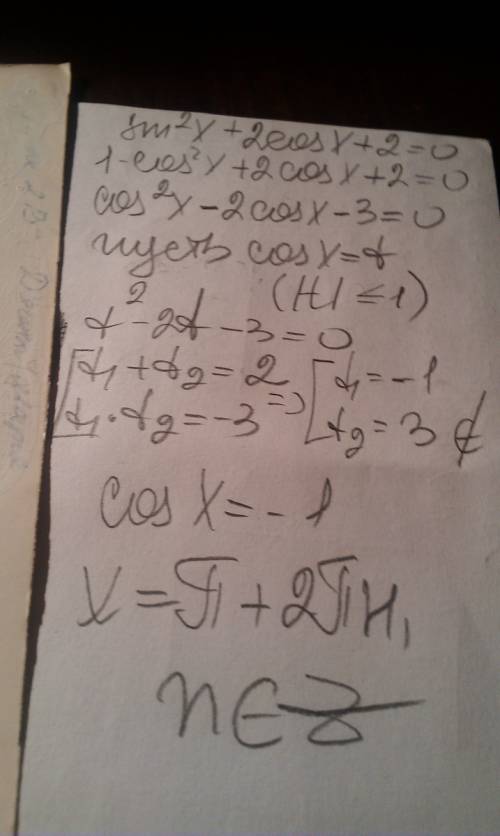 sin²x + 2cosx + 2 = 0
1 - cos²x + 2cosx + 2 = 0
cos²x - 2cosx - 3 = 0
пусть cosx = t
(|t| ≤ 1)
t² - 2t - 3 = 0
[t₁ + t₂ = 2 => [t₁ = -1
t₁ · t₂ = -3 t₂ = 3 ∉
cos x = -1
x = π + 2πн,
n ∈ Z